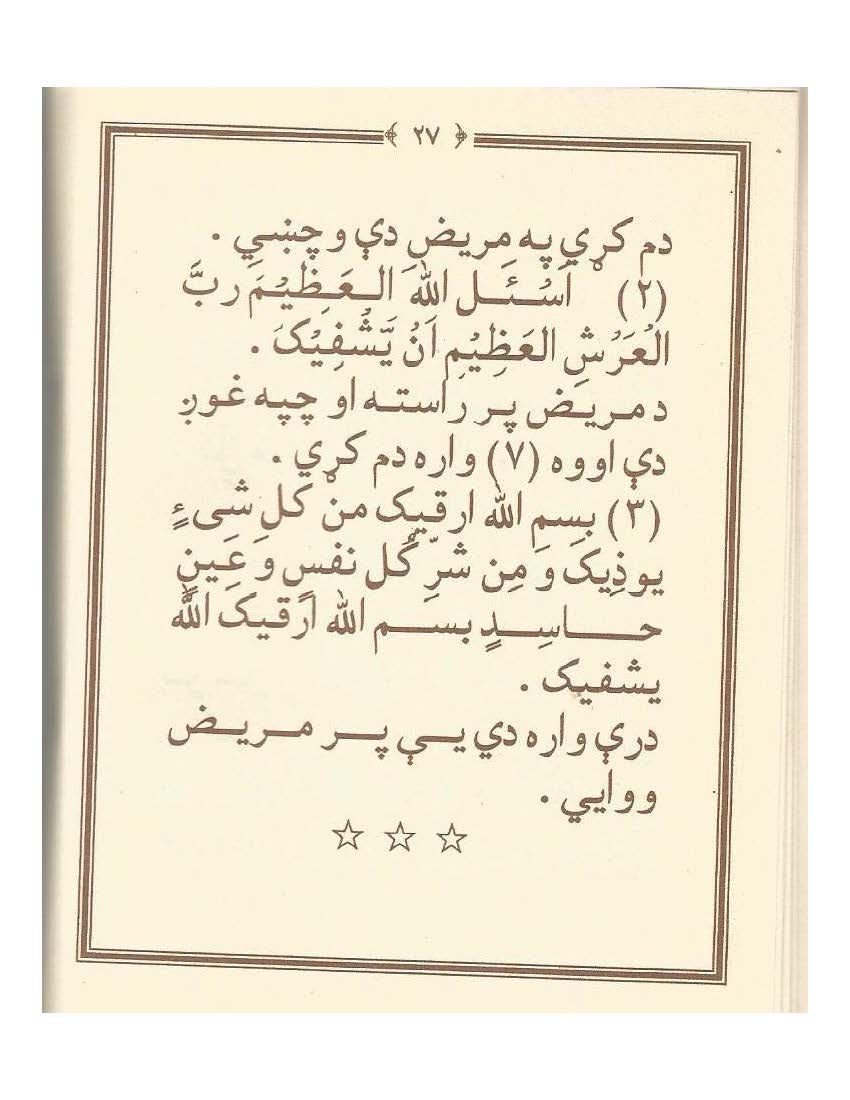 ﴿ ۲۷ ﴾
دم کړي په مریضِ دې و چښيِ .
(۲) اَسْئَـل اللهَ الـعَـظِيْـمَ ربَّ
الْعَرْشِ العَظِيْمِ اَنْ يَّشْفِيْکَ .
د مـریـض پـر راستـه او چپه غوږ
دې اووه (۷) واره دم کړي .
(۳) بِسمِ الله ارقیک من کلِ شیءٍ
یوذِیکَ وَ مِن شرِّ کُل نفسٍ وَ عَینٍ
حـــاسِــدٍ بســم الله اَرقیکَ اللّٰه
یشفیک .
درې واره دي یـې پـر مـریـض
ووایي .
☆ ☆ ☆